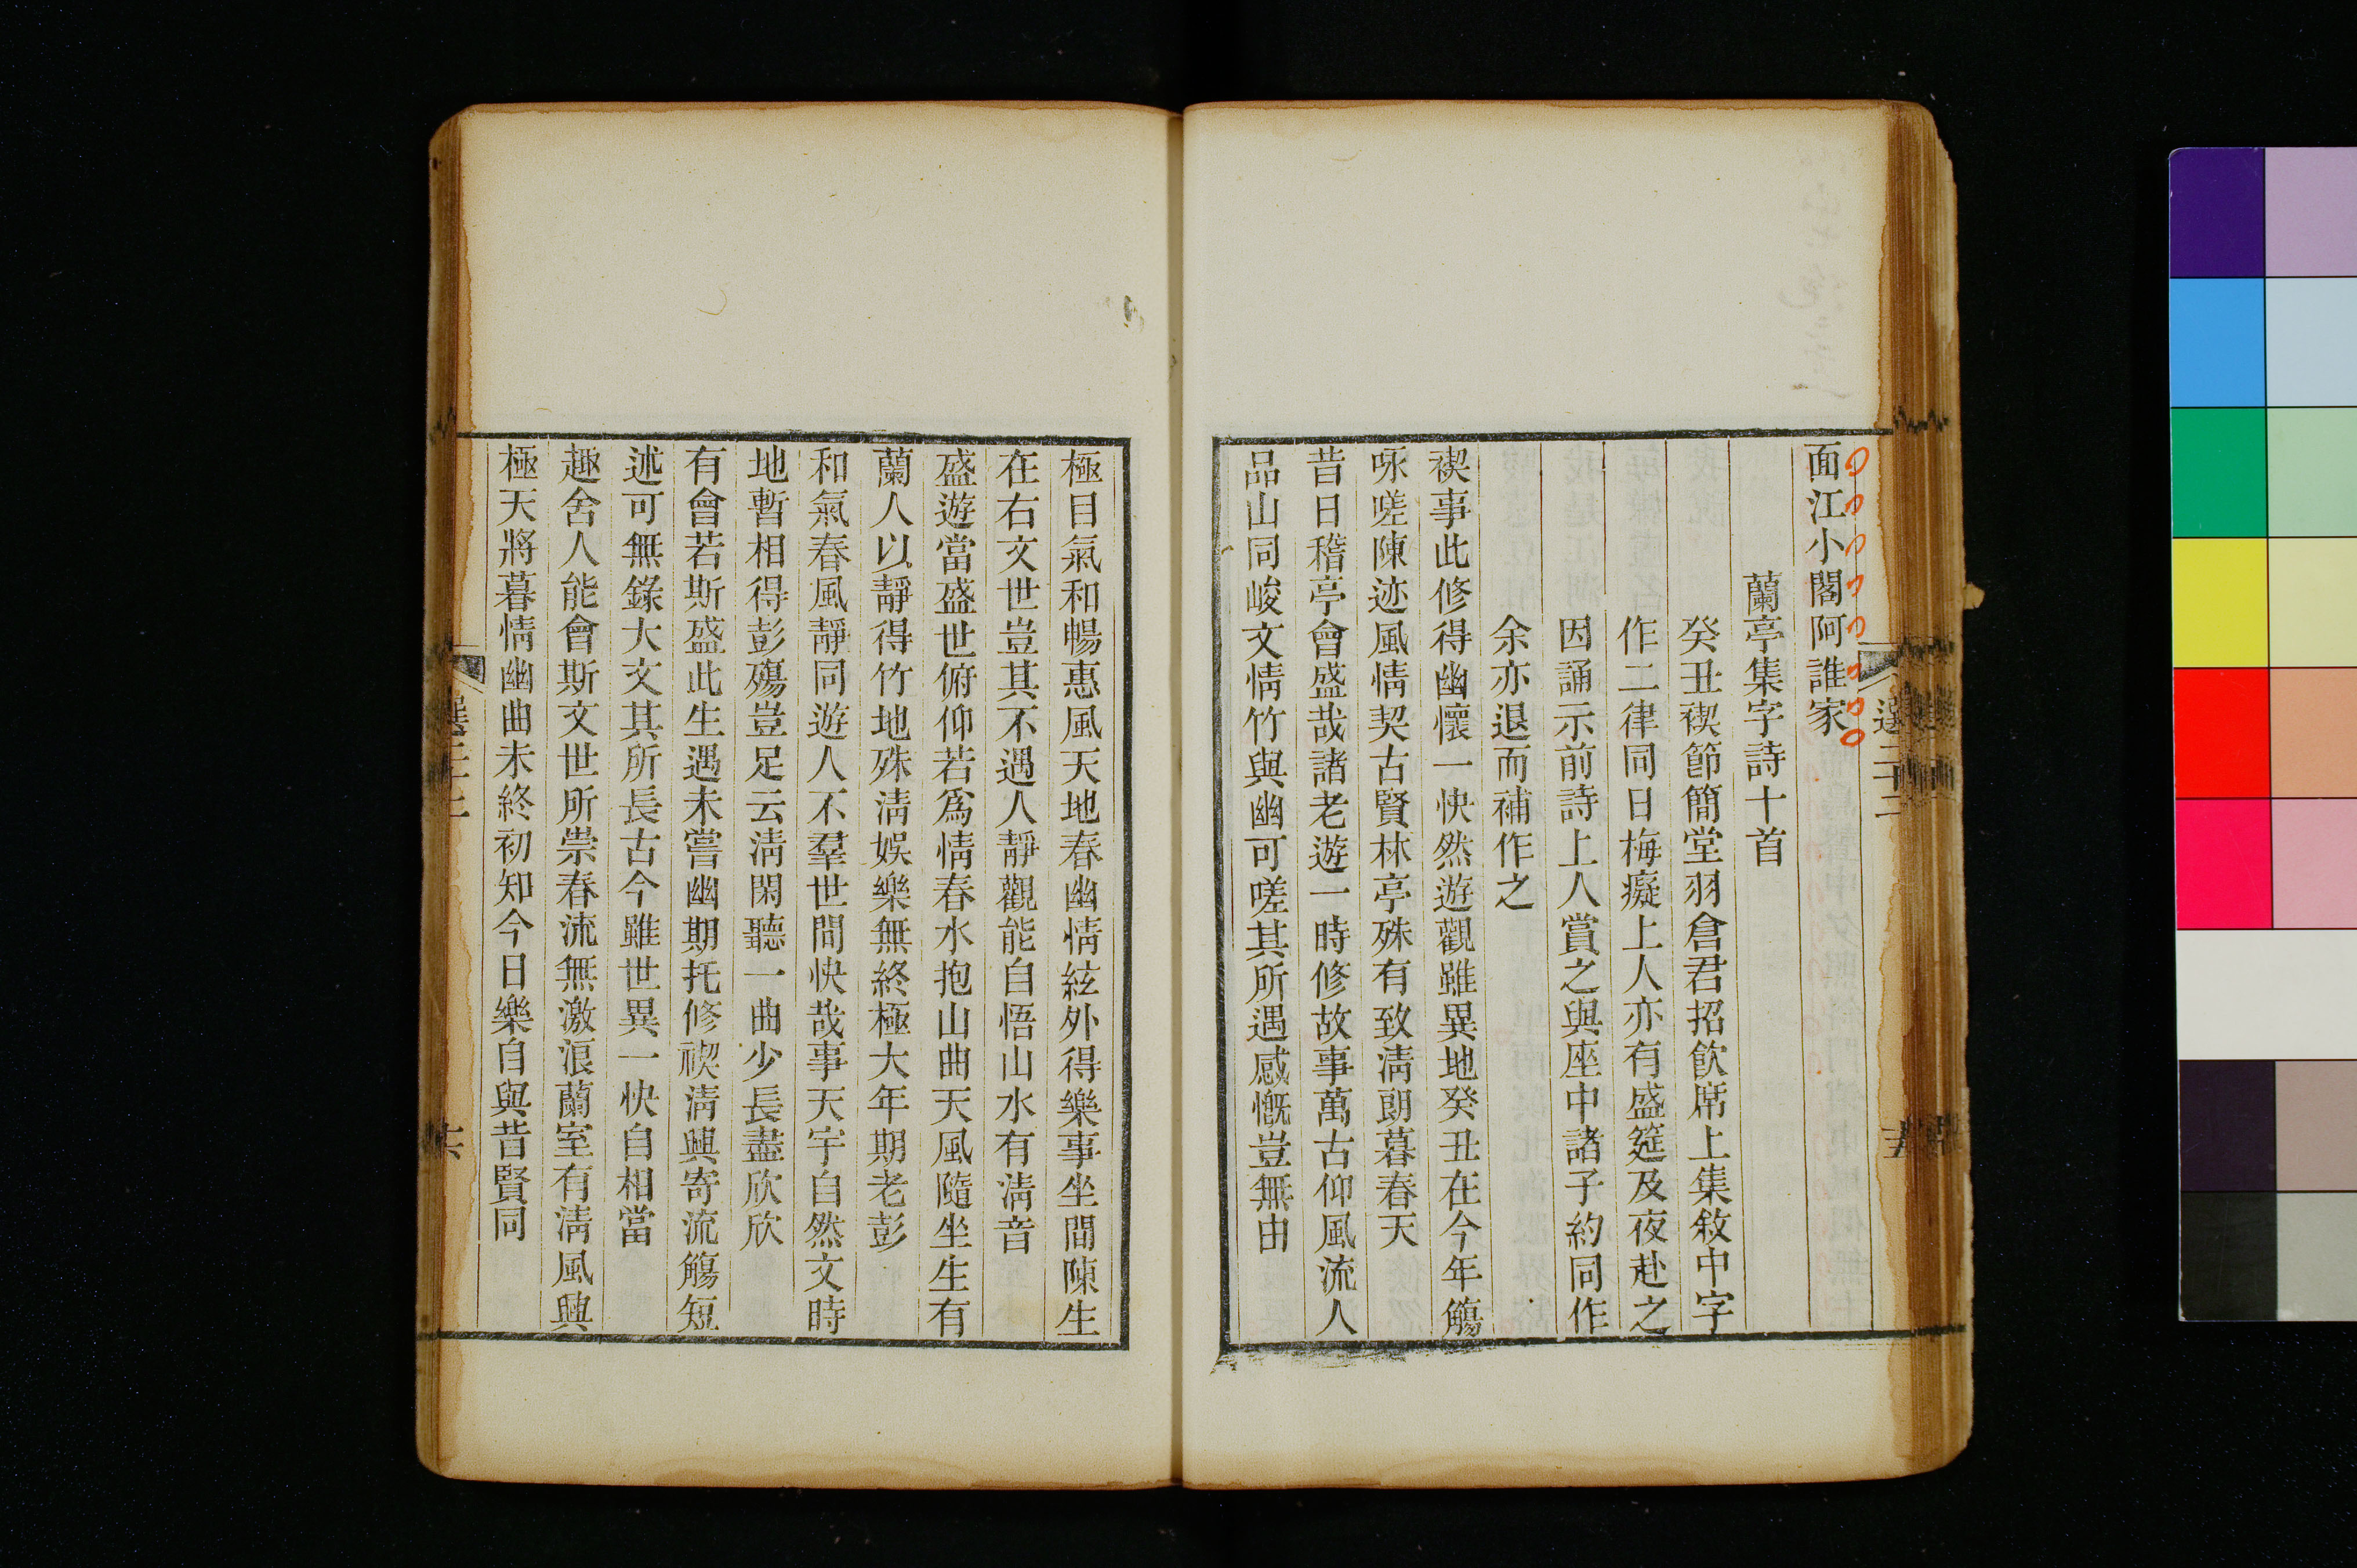 面江小閣阿誰家
蘭亭集字詩十首
癸丑禊節簡堂羽倉君招飮席上集敘中字
作二律同日梅癡上人亦有盛筵及夜赴之
因誦示前詩上人賞之與座中諸子約同作
余亦退而補作之
禊事此修得幽懷一快然遊觀雖異地癸丑在今年觴
咏嗟陳迹風情契古賢林亭殊有致淸朗暮春天
昔日稽亭會盛哉諸老遊一時修故事萬古仰風流人
品山同峻文情竹與幽可嗟其所遇感慨豈無由
極目氣和暢惠風天地春幽情絃外得樂事坐間陳生
在右文世豈其不遇人靜觀能自悟山水有淸音
盛遊當盛世俯仰若爲情春水抱山曲天風隨坐生有
蘭人以靜得竹地殊淸娛樂無終極大年期老彭
和氣春風靜同遊人不羣世間快哉事天宇自然文時
地暫相得彭殤豈足云淸閑聽一曲少長盡欣欣
有會若斯盛此生遇未嘗幽期托修禊淸興寄流觴短
述可無錄大文其所長古今雖世異一快自相當
趣舍人能會斯文世所崇春流無激浪蘭室有淸風興
極天將暮情幽曲未終初知今日樂自與昔賢同